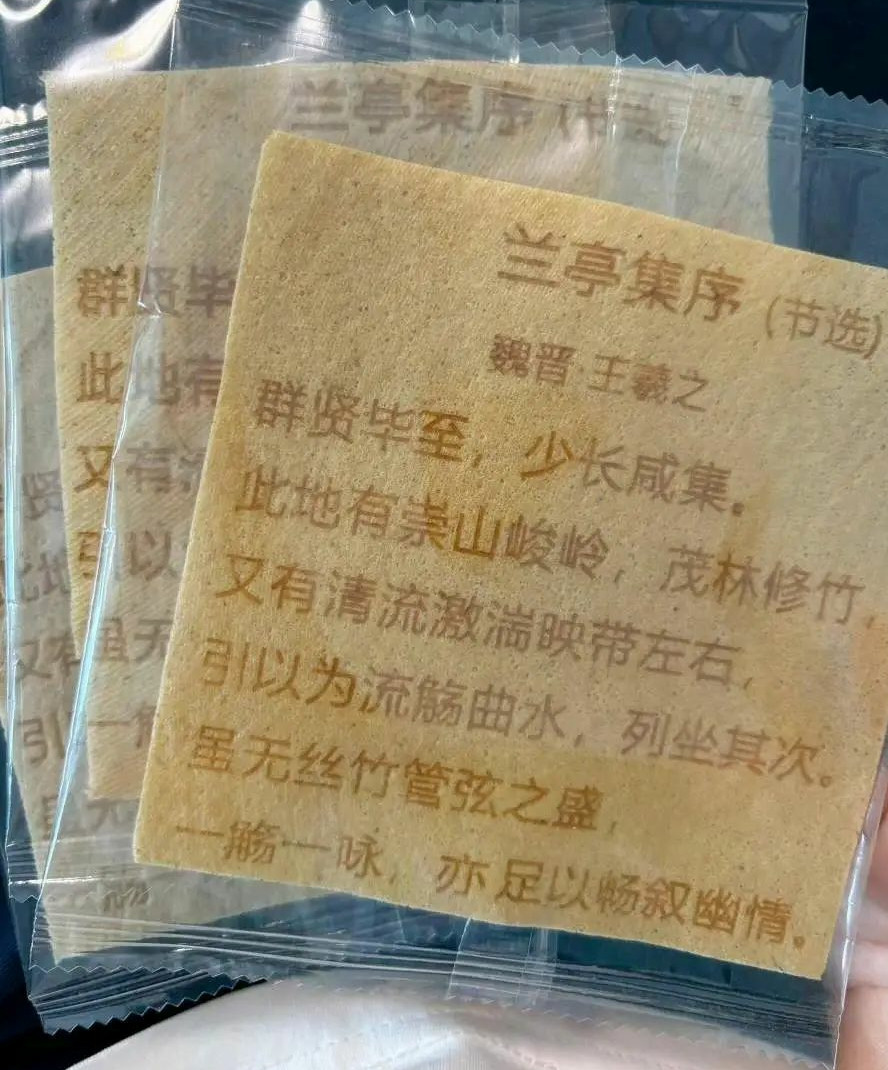 兰亭集序（节选）
魏晋·王羲之
群贤毕至，少长咸集。
此地有崇山峻岭，茂林修竹，
又有清流激湍映带左右，
引以为流觞曲水，列坐其次。
虽无丝竹管弦之盛，
一觞一咏，亦足以畅叙幽情。
兰亭集序（节选）
群贤毕
此地有
又有清
引以
虽无
一觞
贤
此地
又有
引
虽无